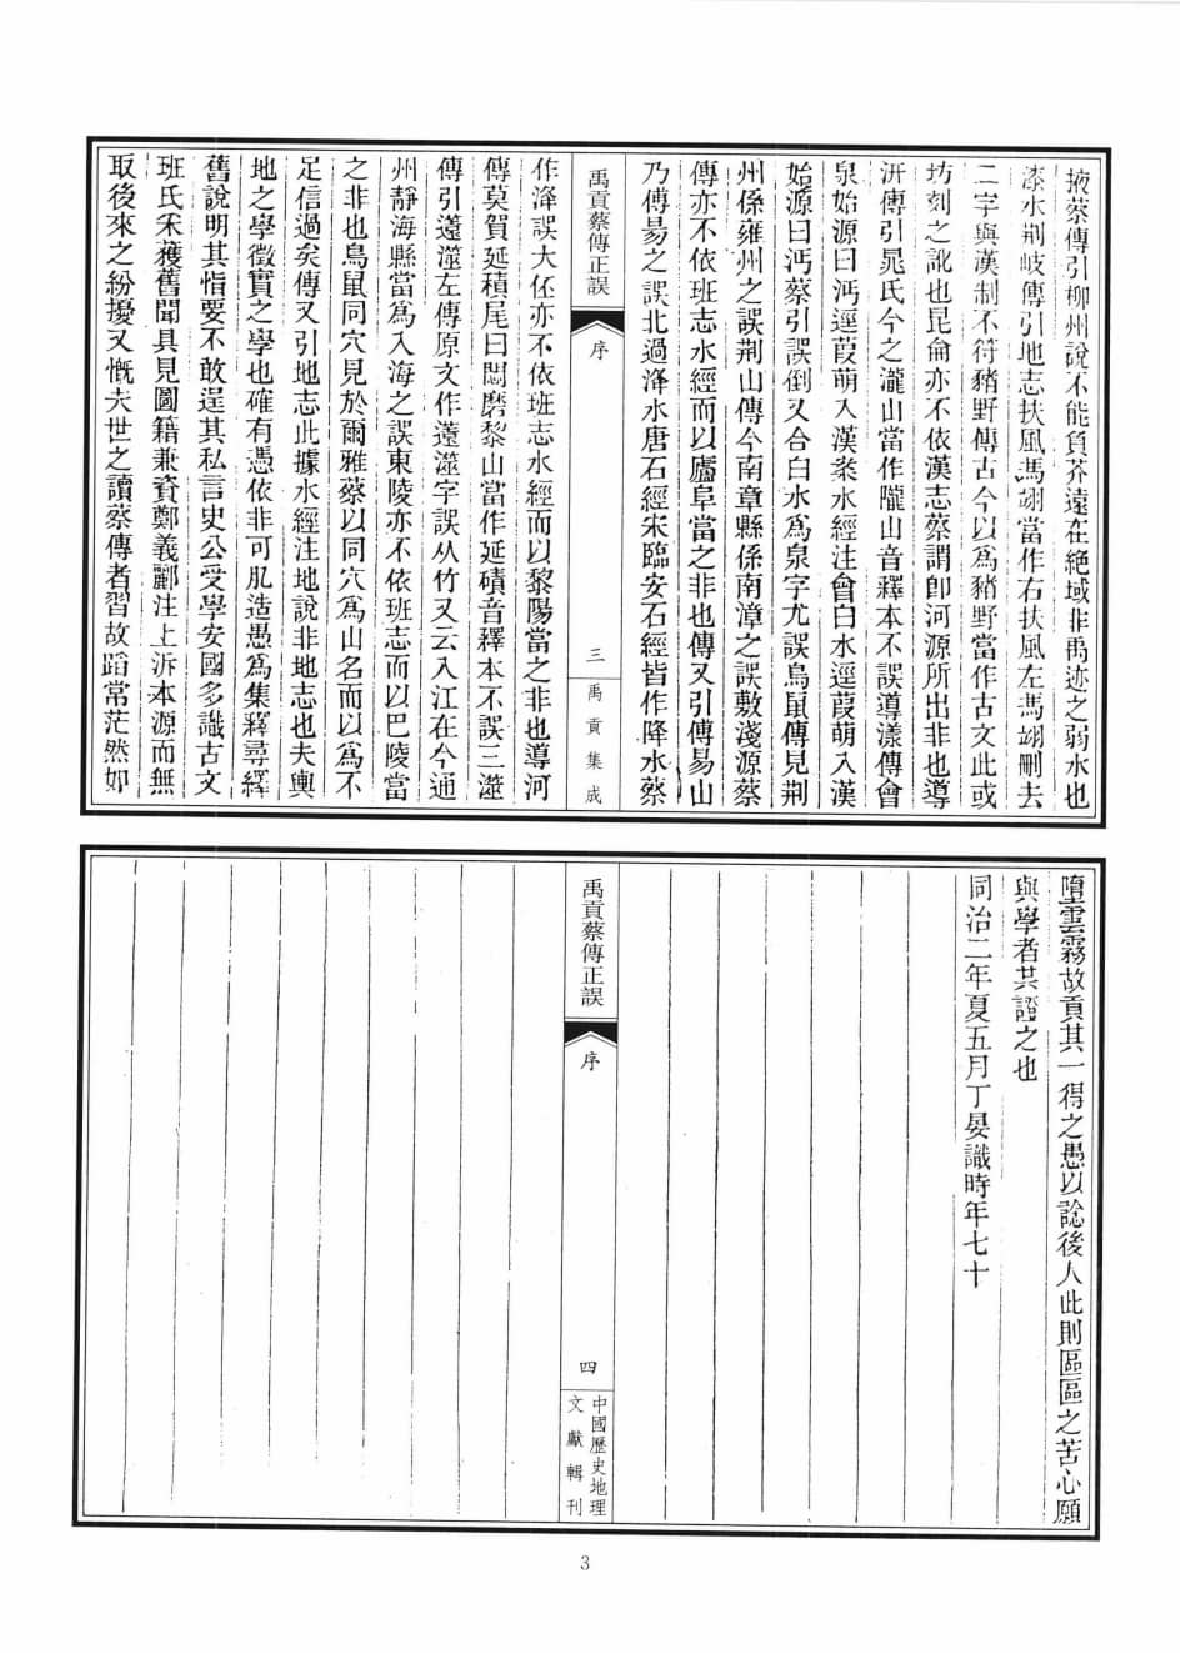 掖蔡傳引柳州說不能負芥遠在絕域非禹迹之弱水也
漆水荆岐傳引地志扶風馮翊當作右扶風左馮翊刪去
二字與漢制不符豬野傳古今以為豬野當作古文此或
坊刻之訛也昆侖亦不依漢志蔡謂卽河源所出非也導
汧傳引晁氏今之瀧山當作隴山音釋本不誤導漾傳會
泉始源曰沔逕葭萌入漢桉水經注會白水逕葭萌入漢
始源曰沔蔡引誤倒又合白水為泉字尤誤鳥鼠傳見荆
州係雍州之誤荆山傳今南章縣係南漳之誤敷淺源蔡
傳亦不依班志水經而以廬阜當之非也傳又引傅易山
乃傅昜之誤北過洚水唐石經宋臨安石經皆作降水蔡
禹貢蔡傳正誤
序
三
禹貢集成
作洚誤大伾亦不依班志水經而以黎陽當之非也導河
傳莫賀延積尾曰悶磨黎山當作延磧音釋本不誤三澨
傳引薳澨左傳原文作薳澨字誤从竹又云入江在今通
州靜海縣當為入海之誤東陵亦不依班志而以巴陵當
之非也鳥鼠同穴見於爾雅蔡以同穴為山名而以為不
足信過矣傳又引地志此據水經注地說非地志也夫輿
地之學徵實之學也確有憑依非可肊造愚為集釋尋繹
舊說明其恉要不敢逞其私言史公受學安國多識古文
班氏釆蒦舊聞具見圖籍兼資鄭義酈注上泝本源而無
取後來之紛擾又慨夫世之讀蔡傳者習故蹈常茫然如
墮雲霧故貢其一得之愚以諗後人此則區區之苦心願
與學者共證之也
同治二年夏五月丁晏識時年七十
禹貢蔡傳正誤
序
四
中國歷史地理
文獻輯刊
3